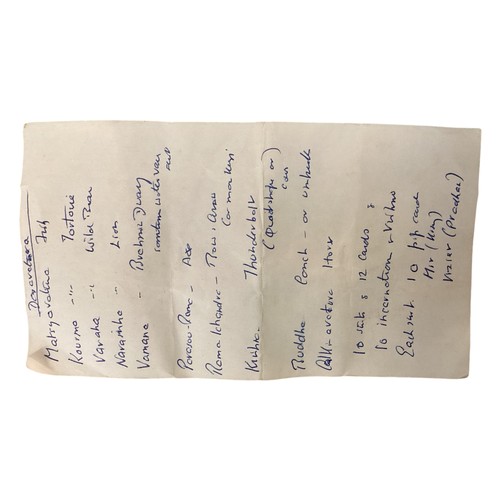 Dasavatara
Matsyavatara Fish
Kourmo -"- Tortoise
Varaha -"- Wild Boar
Narasinho " Lion
Vamana - Brahmin Dwarf
water
Parasou-Rama - Axe
Rama Chandra - Bow & Arrow
(or monkey)
Krishna. Thunderbolt
(
Buddha Conch - or umbrella
Kalki-avatara Horse
10 suits of 12 cards &
10 incarnations of Vishnu
Each suit 10 pip cards
Mir (King)
Vizier (Pradhan)